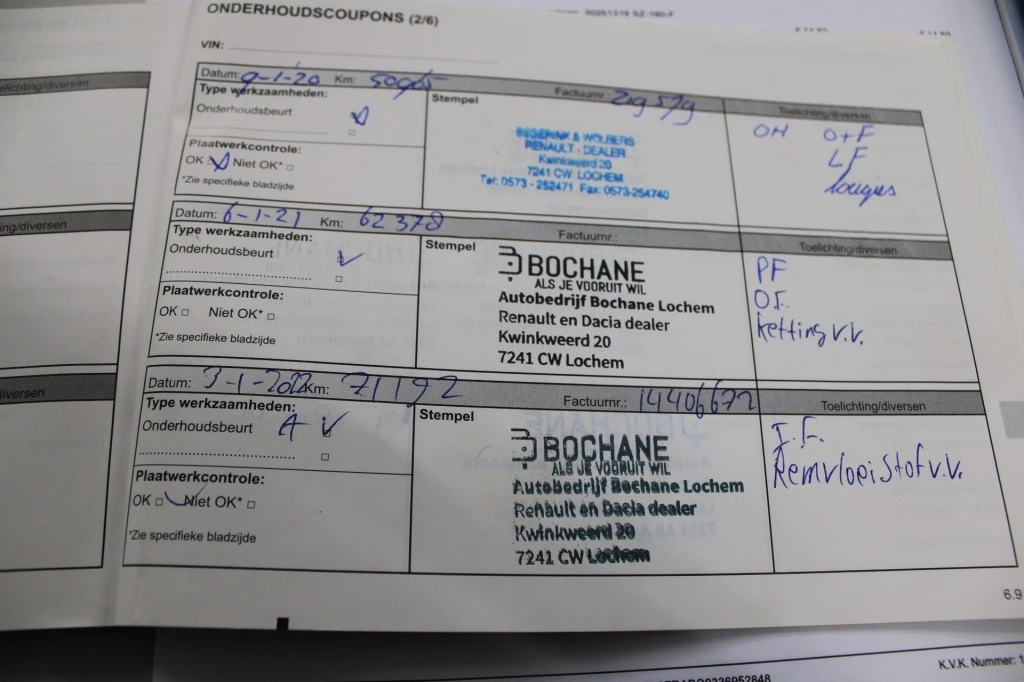 ONDERHOUDSCOUPONS (2/6)
VIN:
Datum: 9-1-20 Km: Factuurnr.:
Toelichting/diversen
Type werkzaamheden:
Stempel
Onderhoudsbeurt
Plaatwerkcontrole:
OK Niet OK*
*Zie specifieke bladzijde
BEGERINK & WOLBERS
RENAULT - DEALER
Kwinkweerd 20
7241 CW LOCHEM
Tel: 0573 - 252471 Fax: 0573-254740
OH O+F
LF
bougies
Datum: 6-1-21 Km: 62378 Factuurnr.:
Toelichting/diversen
Type werkzaamheden:
Stempel
Onderhoudsbeurt
Plaatwerkcontrole:
OK Niet OK*
*Zie specifieke bladzijde
BOCHANE
ALS JE VOORUIT WIL
Autobedrijf Bochane Lochem
Renault en Dacia dealer
Kwinkweerd 20
7241 CW Lochem
PF
ketting v.v.
Datum: 3-1-2022 Km: 71192 Factuurnr.: 14406672
Toelichting/diversen
Type werkzaamheden:
Stempel
Onderhoudsbeurt A
Plaatwerkcontrole:
OK Niet OK*
*Zie specifieke bladzijde
BOCHANE
ALS JE VOORUIT WIL
Autobedrijf Bochane Lochem
Renault en Dacia dealer
Kwinkweerd 20
7241 CW Lochem
I.F.
Remvloeistof v.v.
6.9
K.V.K. Nummer: